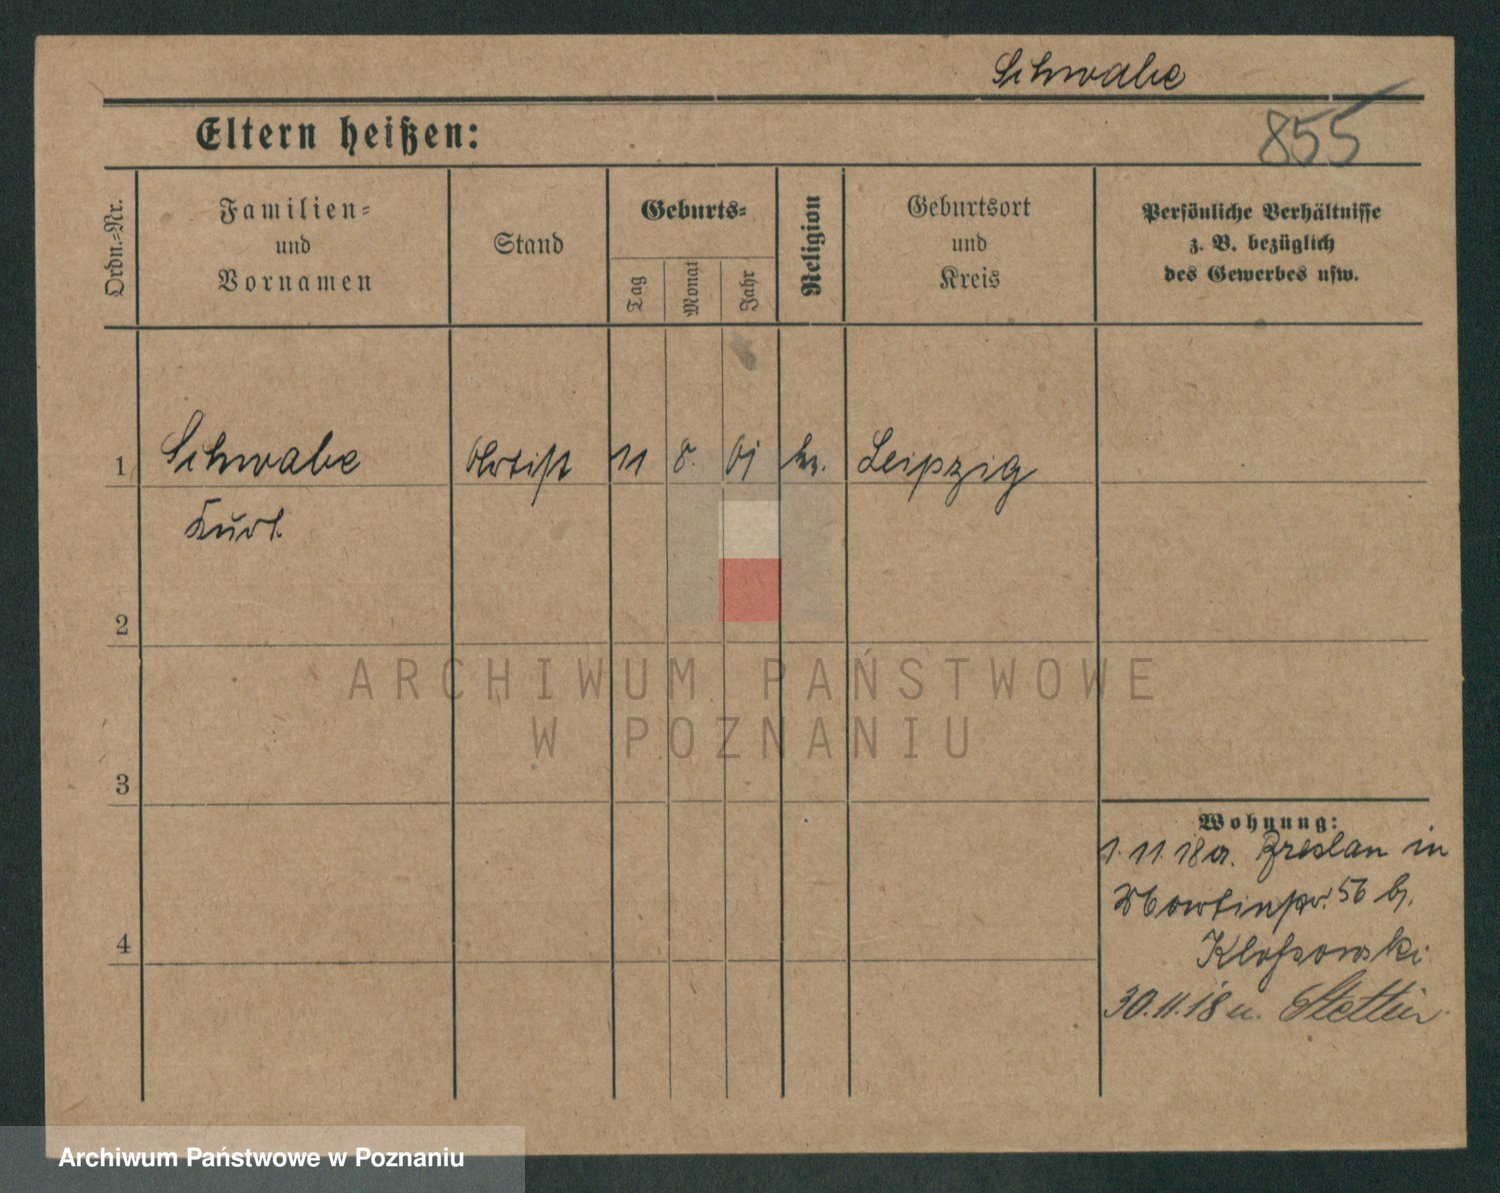 Schwabe
855
Eltern heißen:
Ordn.-Nr.
Familien-
und
Vornamen
Stand
Geburts-
Tag
Monat
Jahr
Religion
Geburtsort
und
Kreis
Persönliche Verhältnisse
z. B. bezüglich
des Gewerbes usw.
1 Schwabe Artist 11 8. Leipzig
Kurt.
2
ARCHIWUM PAŃSTWOWE
W POZNANIU
3
Wohnung:
1.11.18 a. Breslau in
Martinstr. 56 b.
Klossowski
4
30.11.18 u. Stettin.
Archiwum Państwowe w Poznaniu